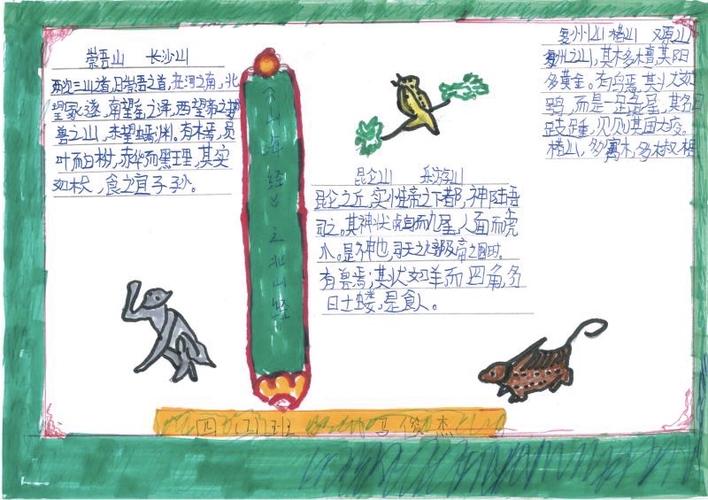 崇吾山 长沙山
西次三山之首,曰崇吾之首,在河之南,北
望冢遂,南望之泽,西望帝之
兽之山,东望渊。有木焉,员
叶而白柎,赤华而黑理,其实
如枳,食之宜子孙。
《山海经》之北山经
昆仑山 游山
昆仑之丘,实惟帝之下都,神陆吾
司之。其神状虎身而九尾,人面而虎
爪。是神也,司天之九部及帝之囿时。
有兽焉,其状如羊而四角,名
曰土蝼,是食人。
复州山 楮山 又原山
复州之山,其木多檀,其阳
多黄金。有鸟焉,其状如
鸮,而是一足彘尾,其名曰
跂踵,见则其国大疫。
楮山,多寓木,多木叔椐
四(2)班 马俊杰